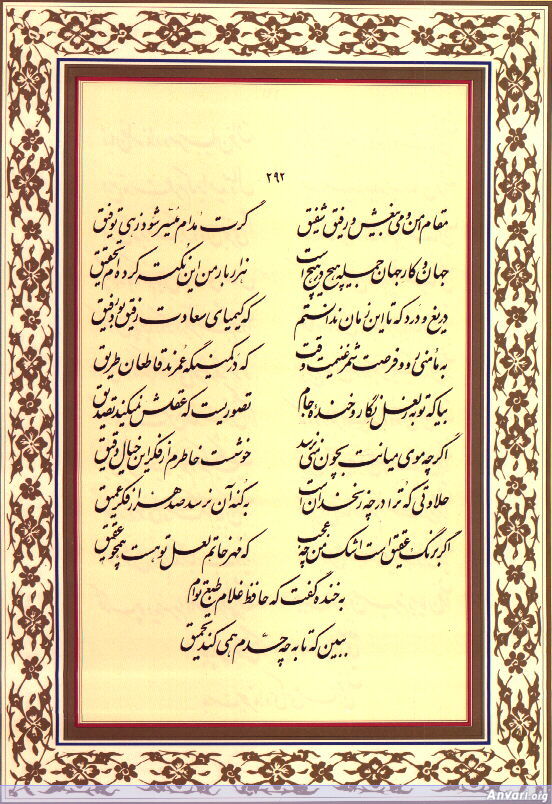 ۲۹۲
مقام امن و می بیغش و رفیق شفیق گرت مدام میسر شود زهی توفیق
جهان و کار جهان جمله هیچ در هیچ است هزار بار من این نکته کرده‌ام تحقیق
دریغ و درد که تا این زمان ندانستم که کیمیای سعادت رفیق بود رفیق
به مأمنی رو و فرصت شمر غنیمت وقت که در کمینگه عمرند قاطعان طریق
بیا که توبه ز لعل نگار و خنده جام تصوریست که عقلش نمیکند تصدیق
اگرچه موی میانت بچون منی نرسد خوشست خاطرم از فکر این خیال دقیق
حلاوتی که ترا در چه زنخدان است به کنه آن نرسد صد هزار فکر عمیق
اگر برنگ عقیق است اشک من چه عجب که مهر خاتم لعل تو هست همچو عقیق
به خنده گفت که حافظ غلام طبع توام
ببین که تا به چه حدم همی کند تحمیق
Anvari.org